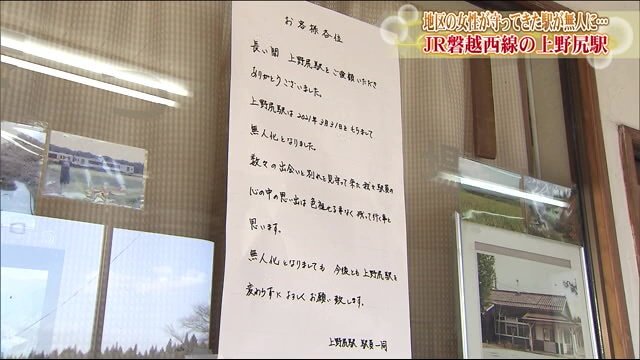 地区の女性が守ってきた駅が無人に…
JR磐越西線の上野尻駅
お客様各位
長い間 上野尻駅をご愛顧いただき
ありがとうございました。
上野尻駅は2021年3月31日をもちまして
無人化となりました。
数々の出会いと別れを見守って来た我々駅員の
心の中の思い出は色褪せる事なく残って行く事と
思います。
無人化となりましても 今後とも上野尻駅を
変わらずによろしくお願い致します。
上野尻駅 駅員一同